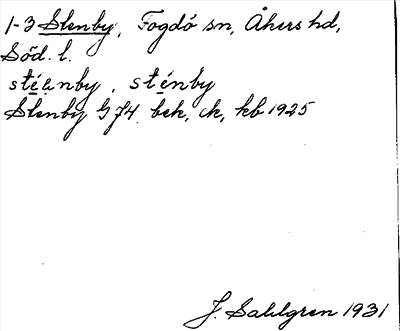 1-3 Stenby, Fogdö sn, Åkers hd,
Söd. l.
stenby G 74, bek, ck, kb 1925
J. Sahlgren 1931